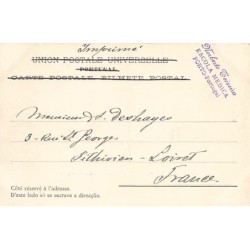 Imprimé
UNION POSTALE UNIVERSELLE
PORTUGAL
CARTE POSTALE, BILHETE POSTAL
ESCOLA MEDICA
PORTO-PORTUGAL
Monsieur J. Deshayes
3 - Rue St. Georges
Pithivier - Loiret
France
Côté réservé à l'adresse.
D'este lado só se escreve a direcção.